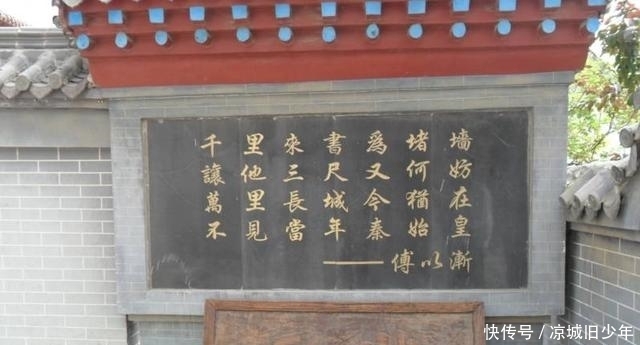 千里來書爲堵墻
讓他三尺又何妨
萬里長城今猶在
不見當年秦始皇
——傅以漸
快传号/凉城旧少年